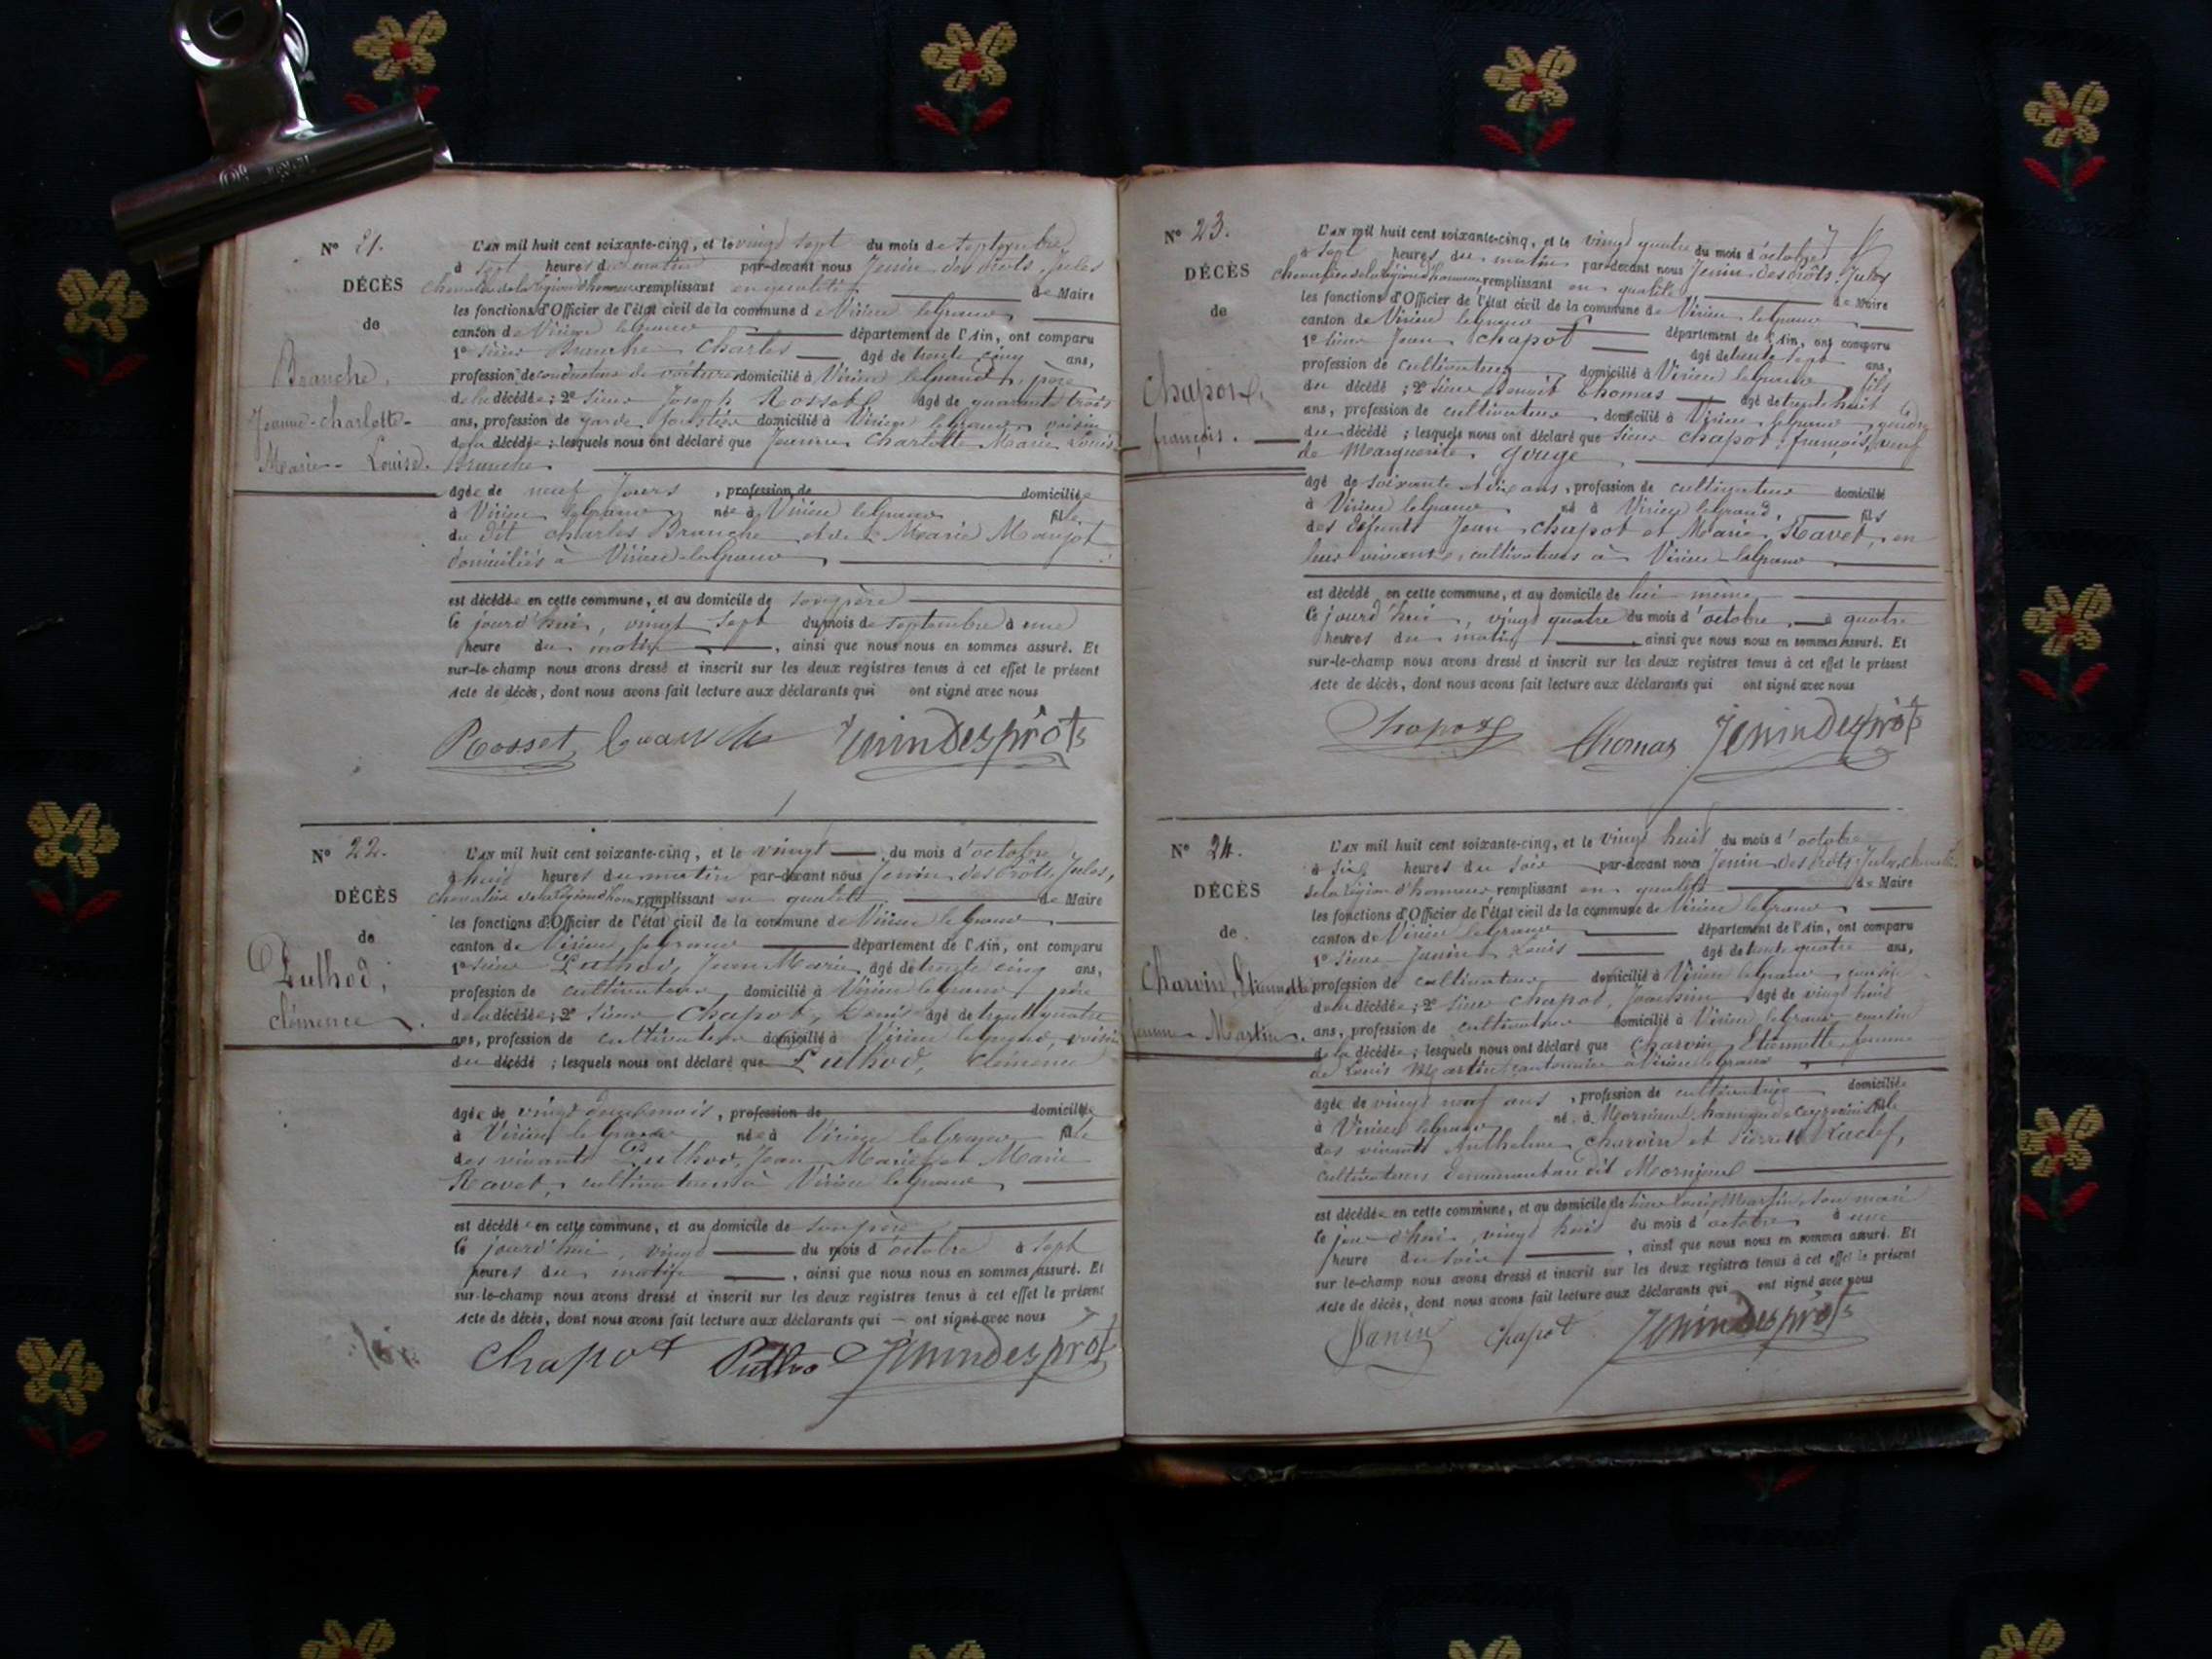 N° 21.
DÉCÈS
de
Branche,
Jeanne-Charlotte-
Marie-Louise.
L'AN mil huit cent soixante-cinq, et le vingt sept du mois de Septembre,
à sept heures du matin par-devant nous Jenin-des prôts, Jules
chevalier de la légion d'honneur remplissant en qualité de Maire
les fonctions d'Officier de l'état civil de la commune de Virieu le Grand
canton de Virieu le Grand département de l'Ain, ont comparu
1° Sieur Branche Charles âgé de trente cinq ans,
profession de conducteur de voitures domicilié à Virieu le Grand, père
de la décédée ; 2° Sieur Joseph Rosset âgé de quarante trois
ans, profession de garde forestier domicilié à Virieu le Grand, voisin
de la décédée ; lesquels nous ont déclaré que Jeanne Charlotte Marie Louise
Branche
âgée de neuf jours , profession de domiciliée
à Virieu le Grand née à Virieu le Grand fille
du dit Charles Branche et de Marie Maujot
domiciliés à Virieu-le-Grand
est décédée en cette commune, et au domicile de son père
Ce jourd'hui, vingt sept du mois de Septembre à une
heure du matin , ainsi que nous nous en sommes assuré. Et
sur-le-champ nous avons dressé et inscrit sur les deux registres tenus à cet effet le présent
Acte de décès, dont nous avons fait lecture aux déclarants qui ont signé avec nous
Rosset Branche Jenin Desprôts
N° 22.
DÉCÈS
de
Puthod,
Clémence
L'AN mil huit cent soixante-cinq, et le vingt du mois d'octobre
à huit heures du matin par-devant nous Jenin-des prôts, Jules,
chevalier de la légion d'hon. remplissant en qualité de Maire
les fonctions d'Officier de l'état civil de la commune de Virieu le Grand
canton de Virieu le Grand département de l'Ain, ont comparu
1° Sieur Puthod, Jean Marie âgé de trente cinq ans,
profession de cultivateur, domicilié à Virieu le Grand père
de la décédée ; 2° Sieur Chapot, Denis âgé de trente quatre
ans, profession de cultivateur domicilié à Virieu le grand, voisin
du décédé ; lesquels nous ont déclaré que Puthod, Clémence
âgée de vingt mois , profession de domiciliée
à Virieu le Grand née à Virieu le Grand fille
des vivants Puthod, Jean Marie et Marie
Ravet, cultivateurs à Virieu le grand
est décédée en cette commune, et au domicile de son père
Ce jourd'hui, vingt du mois d'octobre à sept
heures du matin , ainsi que nous nous en sommes assuré. Et
sur-le-champ nous avons dressé et inscrit sur les deux registres tenus à cet effet le présent
Acte de décès, dont nous avons fait lecture aux déclarants qui ont signé avec nous
Chapot Puthod Jenin Desprôts
N° 23.
DÉCÈS
de
Chapot,
françois.
L'AN mil huit cent soixante-cinq, et le vingt quatre du mois d'octobre
à sept heures du matin par-devant nous Jenin-des prôts, Jules
chevalier de la légion d'honneur remplissant en qualité de Maire
les fonctions d'Officier de l'état civil de la commune de Virieu le grand
canton de Virieu le grand département de l'Ain, ont comparu
1° Sieur Jean Chapot âgé de trente sept ans,
profession de cultivateur domicilié à Virieu le grand fils
du décédé ; 2° Sieur Benoit Thomas âgé de trente huit
ans, profession de cultivateur domicilié à Virieu le grand, gendre
du décédé ; lesquels nous ont déclaré que Sieur Chapot, françois, veuf
de Marguerite Gouge
âgé de soixante et dix ans, profession de cultivateur domicilié
à Virieu le grand né à Virieu le Grand, fils
des défunts Jean Chapot et Marie Ravet, en
leur vivants, cultivateurs à Virieu-le grand
est décédé en cette commune, et au domicile de lui même
Ce jourd'hui, vingt quatre du mois d'octobre, à quatre
heures du matin , ainsi que nous nous en sommes assuré. Et
sur-le-champ nous avons dressé et inscrit sur les deux registres tenus à cet effet le présent
Acte de décès, dont nous avons fait lecture aux déclarants qui ont signé avec nous
Chapot Thomas Jenin Desprôts
N° 24.
DÉCÈS
de
Charvin, Etiennette
femme Martin.
L'AN mil huit cent soixante-cinq, et le vingt huit du mois d'octobre
à six heures du soir par-devant nous Jenin-des prôts, Jules, chevalier
de la légion d'honneur remplissant en qualité de Maire
les fonctions d'Officier de l'état civil de la commune de Virieu le Grand
canton de Virieu le grand département de l'Ain, ont comparu
1° Sieur Janin Louis âgé de trente quatre ans,
profession de cultivateur domicilié à Virieu le grand cousin
de la décédée ; 2° Sieur Chapot, âgé de vingt huit
ans, profession de cultivateur domicilié à Virieu le grand cousin
de la décédée ; lesquels nous ont déclaré que Charvin, Etiennette, femme
de Louis Martin, cantonnier à Virieu le Grand
âgée de vingt neuf ans , profession de cultivatrice domiciliée
à Virieu le grand né à fille
des vivants Anthelme Charvin et Pierrette
cultivateurs demeurant au dit
est décédée en cette commune, et au domicile de Sieur Louis Martin, son mari
Ce jour d'hui, vingt huit du mois d'octobre à une
heure du soir , ainsi que nous nous en sommes assuré. Et
sur-le-champ nous avons dressé et inscrit sur les deux registres tenus à cet effet le présent
Acte de décès, dont nous avons fait lecture aux déclarants qui ont signé avec nous
Janin Chapot Jenin Desprôts